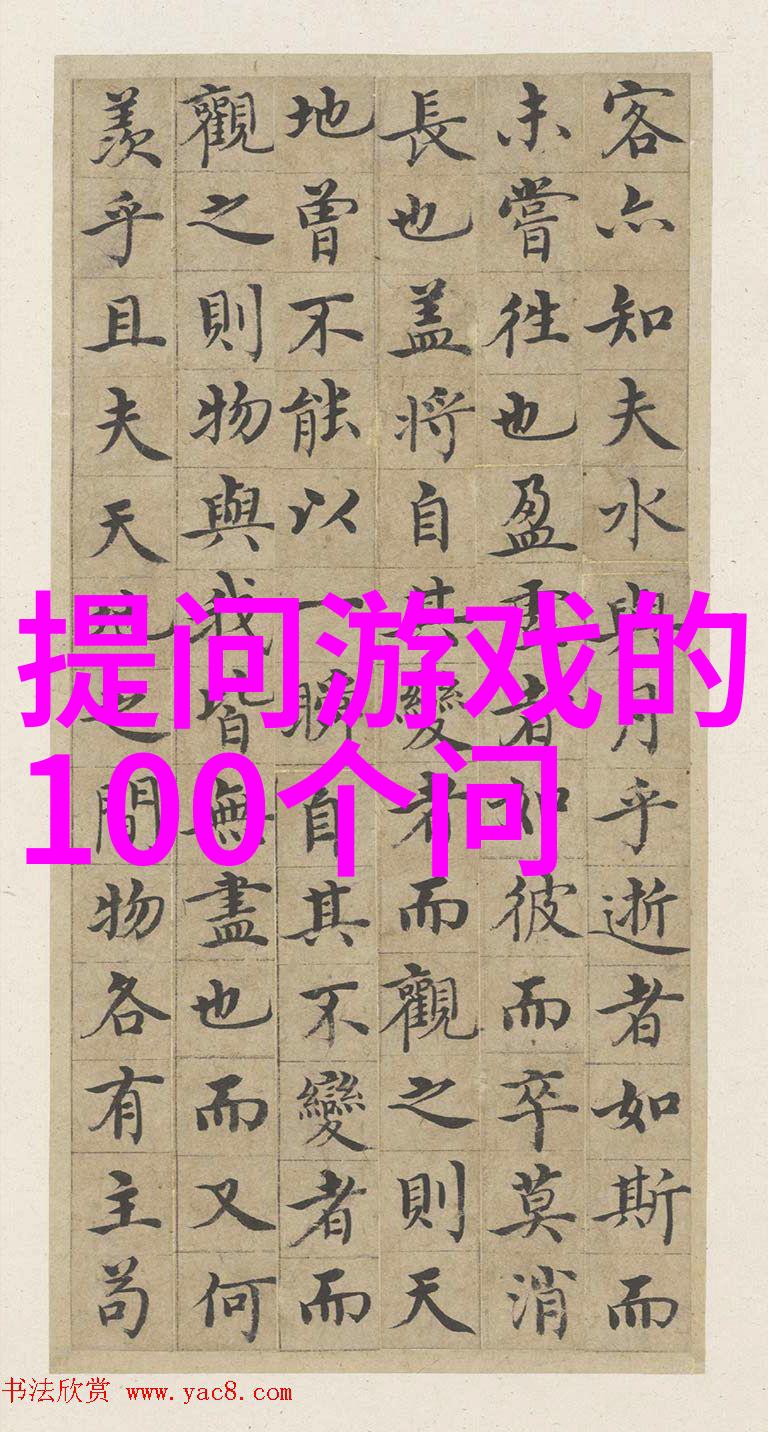 客亦知夫水與月乎逝者如斯而
未嘗往也盈虛者如彼而卒莫消
長也盖將自其變者而觀之則天
地曾不能以一瞬自其不變者而
觀之則物與我皆無盡也而又何
羨乎且夫天地之間物各有主苟
提问游戏的
100个问
书法欣赏 www.yac8.com